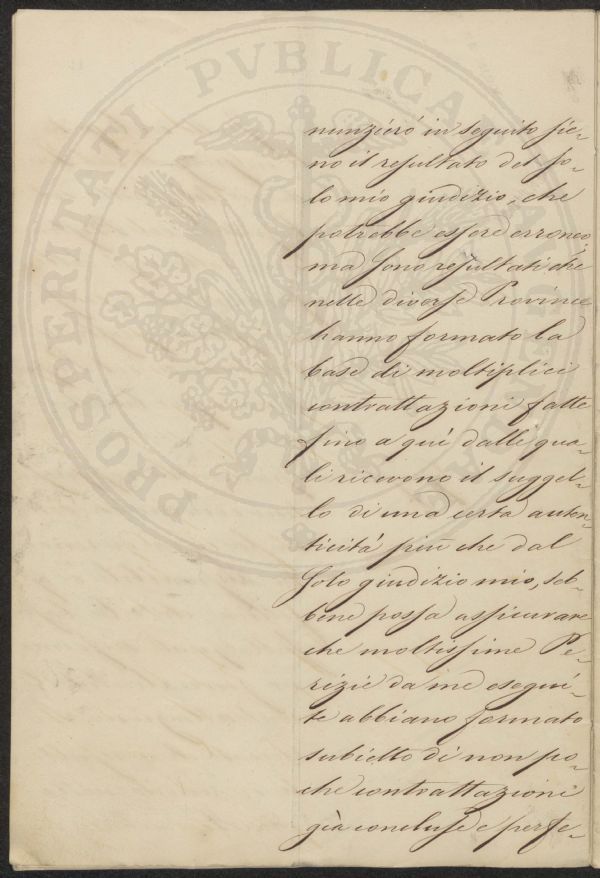 PROSPERITATI PVBLICAE AVGENDAE
nunzierò in seguito sie-
no il resultato del so-
lo mio giudizio, che
potrebbe essere erroneo,
ma sono resultati che
nelle diverse Province
hanno formato la
base di moltiplici
contrattazioni fatte
fino a quì dalle qua-
li ricevono il suggel-
lo di una certa auten-
ticità più che dal
solo giudizio mio, seb-
bene possa assicurare
che moltissime Pe-
rizie da me esegui-
te abbiano formato
subietto di non po-
che contrattazioni
già concluse e perfe-